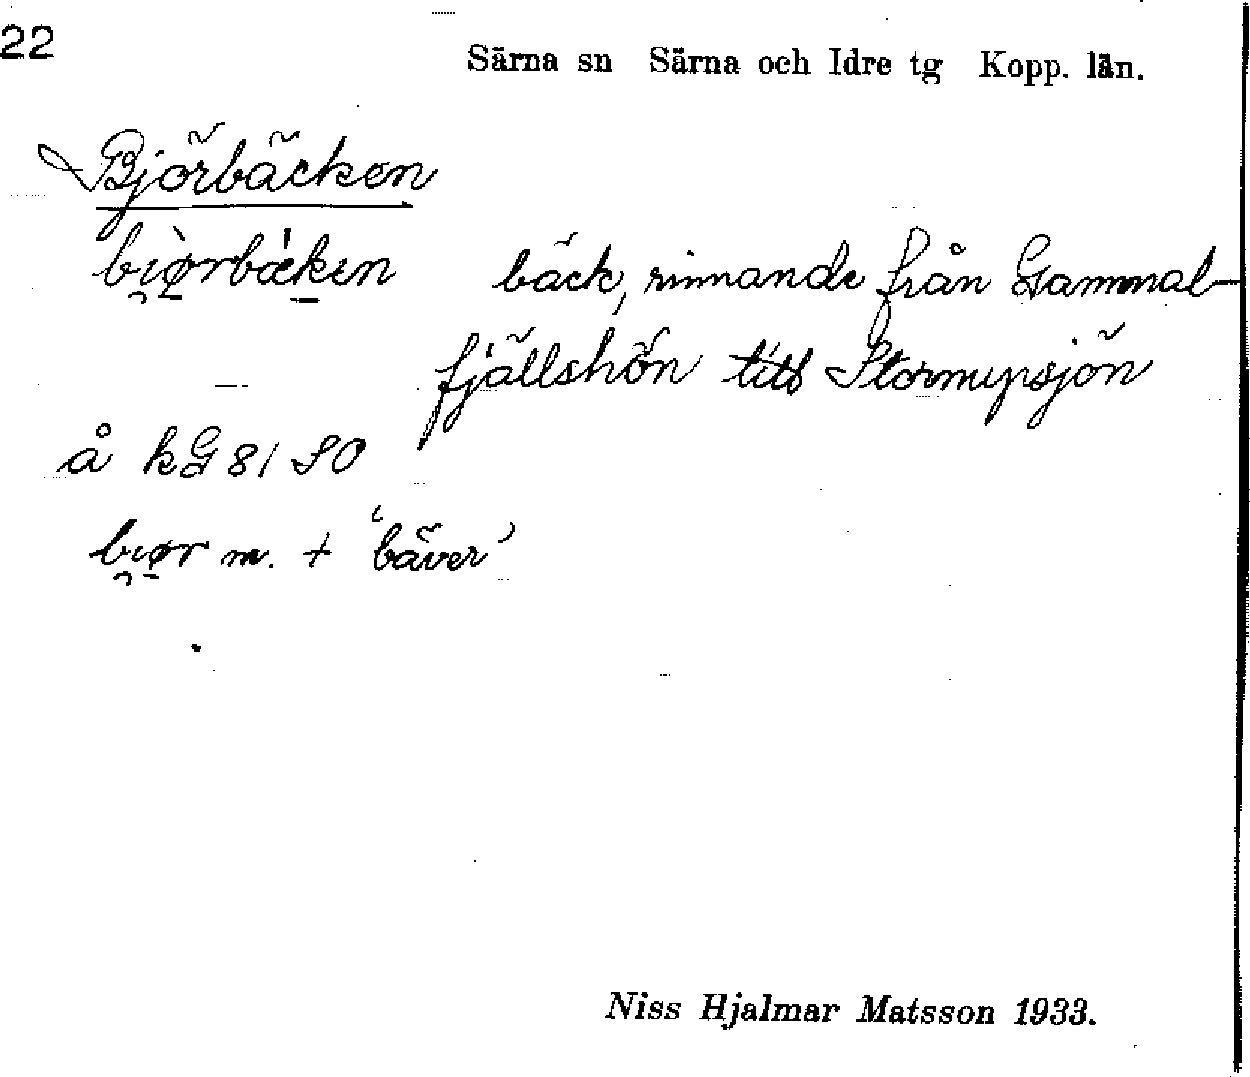 22
Särna sn Särna och Idre tg Kopp. län.
Björbäcken
bäck, rinnande från Gammal-
fjällshön till Stormyrsjön
å kG 81 SO
m. + 'bäver'
Niss Hjalmar Matsson 1933.